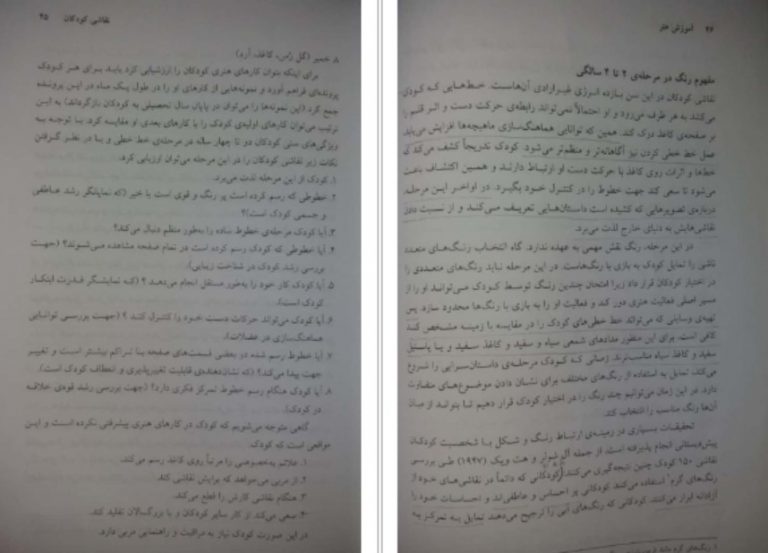 نقاشی کودکان ۴۵
۸. خمیر (گل رُس، کاغذ، آرد)
برای اینکه بتوان کارهای هنری کودکان را ارزشیابی کرد باید برای هر کودک
پرونده‌ای فراهم آورد و نمونه‌هایی از کارهای او را در طول یک ماه در این پرونده
جمع کرد (این نمونه‌ها را می‌توان در پایان سال تحصیلی به کودکان بازگرداند) به این
ترتیب می‌توان کارهای اولیه‌ی کودک را با کارهای بعدی او مقایسه کرد. با توجه به
ویژگی‌های سنی کودکان دو تا چهار ساله در مرحله‌ی خط خطی و با در نظر گرفتن
نکات زیر نقاشی کودکان را در این مرحله می‌توان ارزیابی کرد.
۱. کودک از این مرحله لذت می‌برد.
۲. خطوطی که رسم کرده است پر رنگ و قوی است یا خیر (که نمایانگر رشد عاطفی
و جسمی کودک است)؟
۳. آیا کودک مرحله‌ی خطوط ساده را به‌طور منظم دنبال می‌کند؟
۴. آیا خطوطی که کودک رسم کرده است در تمام صفحه مشاهده می‌شوند؟ (جهت
بررسی رشد کودک در شناخت زیبایی).
۵. آیا کودک کار خود را به‌طور مستقل انجام می‌دهد؟ (که نمایشگر قدرت ابتکار
کودک است).
۶. آیا کودک می‌تواند حرکات دست خود را کنترل کند؟ (جهت بررسی توانایی
هماهنگ‌سازی در عضلات).
۷. آیا خطوط رسم شده در بعضی قسمت‌های صفحه با تراکم بیشتر است و تغییر
جهت پیدا می‌کند؟ (که نشان‌دهنده‌ی قابلیت تغییرپذیری و انعطاف کودک است).
۸. آیا کودک هنگام رسم خطوط تمرکز فکری دارد؟ (جهت بررسی رشد قوه‌ی خلاقه
در کودک).
گاهی متوجه می‌شویم که کودک در کارهای هنری پیشرفتی نکرده است و این
مواقعی است که کودک.
۱. علائم به‌خصوصی را مرتباً روی کاغذ رسم می‌کند.
۲. از مربی می‌خواهد که برایش نقاشی کند.
۳. هنگام نقاشی کارش را قطع می‌کند.
۴. سعی می‌کند از کار سایر کودکان و یا بزرگسالان تقلید کند.
در این صورت کودک نیاز به مراقبت و راهنمایی مربی دارد.
۴۶ آموزش هنر
مفهوم رنگ در مرحله‌ی ۲ تا ۴ سالگی
نقاشی کودکان در این سن بازده انرژی غیرارادی آن‌هاست. خط‌هایی که کودک
می‌کشد به هر طرف می‌رود و او احتمالاً نمی‌تواند رابطه‌ی حرکت دست و اثر قلم را
بر صفحه‌ی کاغذ درک کند. همین که توانایی هماهنگ‌سازی ماهیچه‌ها افزایش می‌یابد
عمل خط خطی کردن نیز آگاهانه‌تر و منظم‌تر می‌شود. کودک تدریجاً کشف می‌کند که
خط‌ها و اثرات روی کاغذ با حرکت دست او ارتباط دارند و همین اکتشاف باعث
می‌شود تا سعی کند جهت خطوط را در کنترل خود بگیرد. در اواخر این مرحله،
درباره‌ی تصویرهایی که کشیده است داستان‌هایی تعریف می‌کند و از نسبت دادن
نقاشی‌هایش به دنیای خارج لذت می‌برد.
در این مرحله، رنگ نقش مهمی به عهده ندارد. گاه انتخاب رنگ‌های متعدد
ناشی از تمایل کودک به بازی با رنگ‌هاست. در این مرحله نباید رنگ‌های متعددی را
در اختیار کودکان قرار داد زیرا امتحان چندین رنگ توسط کودک می‌توانید او را از
مسیر اصلی فعالیت هنری دور کند و فعالیت او را به بازی با رنگ‌ها محدود سازد. پس
تهیه‌ی وسایلی که می‌تواند خط خطی‌های کودک را در مقایسه با زمینه مشخص کند
کافی است. برای این منظور مدادهای شمعی سیاه و سفید و کاغذ سفید و یا پاستیل
سفید و کاغذ سیاه مناسب‌ترند. زمانی که کودک مرحله‌ی داستان‌سرایی را شروع
می‌کند، تمایل به استفاده از رنگ‌های مختلف برای نشان دادن موضوع‌های متفاوت
دارد. در این زمان می‌توانیم چند رنگ را در اختیار کودک قرار دهیم تا بتواند از میان
آن‌ها رنگ مناسب را انتخاب کند.
تحقیقات بسیاری در زمینه‌ی ارتباط رنگ و شکل با شخصیت کودکان
پیش‌دبستانی انجام پذیرفته است. از جمله آل شولر و هت ویک (۱۹۴۷) طی بررسی
نقاشی ۱۵۰ کودک چنین نتیجه‌گیری می‌کنند: کودکانی که دائماً در نقاشی‌های خود از
رنگ‌های گرم استفاده می‌کنند، کودکانی پر احساس و عاطفی‌اند و احساسات خود را
آزادانه ابراز می‌کنند. کودکانی که رنگ‌های آبی را ترجیح می‌دهند تمایل به تمرکز به